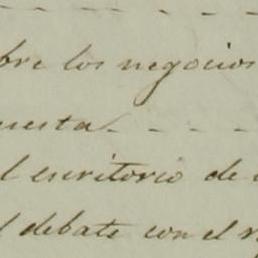 bre los negocios
uesta - - -
l escritorio de
l debate con el